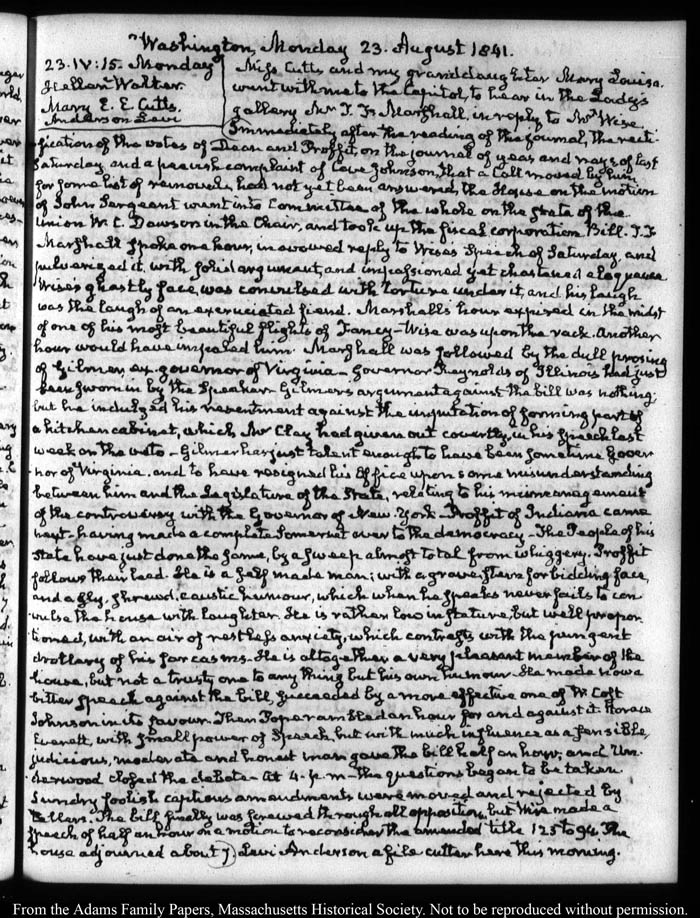 Washington, Monday 23. August 1841.
23. IV:15. Monday
Hellen Walter.
Mary E. E. Cutts.
Anderson Levi
Miss Cutts and my granddaughter Mary Louisa.
went with me to the Capitol, to hear in the Lady's
gallery Mr T. F. Marshall, in reply to Mr Wise.
Immediately after the reading of the journal, the recti-
fication of the votes of Dean and Proffit, on the journal of yeas and nays of last
Saturday, and a peevish complaint of Cave Johnson, that a Call moved by him
for some list of removals, had not yet been answered, the House on the motion
of John Sergeant went into Committee of the whole on the state of the
Union W. C. Dawson in the Chair, and took up the fiscal corporation Bill. T. F.
Marshall spoke one hour, in avowed reply to Wise's Speech of Saturday, and
pulverized it, with solid argument, and impassioned yet chastened eloquence
Wise's ghastly face, was convulsed with torture under it, and his laugh
was the laugh of an excruciated fiend. Marshall's hour expired in the midst
of one of his most beautiful flights of Fancy—Wise was upon the rack. Another
hour would have impaled him. Marshall was followed by the dull prosing
of Gilmer, ex-governor of Virginia—Governor Reynolds of Illinois had just
been sworn in by the Speaker—Gilmer's argument against the bill was nothing;
but he indulged his resentment against the imputation of forming part of
a kitchen cabinet, which Mr Clay had given out covertly, in his speech last
week on the veto—Gilmer has just talent enough to have been sometime Gover-
nor of Virginia. and to have resigned his Office upon some misunderstanding
between him and the Legislature of the State, relating to his mismanagement
of the controversy with the Governor of New-York—Proffit of Indiana came
next—having made a complete Somerset over to the democracy—The People of his
State have just done the same, by a sweep almost total from whiggery. Proffit
follows their lead. He is a self made man; with a grave, stern forbidding face,
and a sly, shrewd, caustic humour, which when he speaks never fails to con-
vulse the house with laughter. He is rather low in stature, but well propor-
tioned, with an air of restless anxiety, which contrasts with the pungent
drollery of his sarcasms. He is altogether a very pleasant member of the
house, but not a trusty one to any thing but his own humour. He made now a
bitter speech against the bill, succeeded by a more effective one of W. Cost
Johnson in its favour. Then Pope rambled an hour for and against it. Horace
Everett, with small power of Speech, but with much influence as a sensible,
judicious, moderate and honest man gave the bill half an hour, and Un-
derwood closed the debate—At 4. p.m—the questions began to be taken.
Sundry foolish captious amendments were moved and rejected by
Tellers. The bill finally was screwed through all opposition, but Wise made a
speech of half an hour on a motion to reconsider the amended title 125 to 94. The
house adjourned about 7. Levi Anderson a file cutter here this morning.
From the Adams Family Papers, Massachusetts Historical Society. Not to be reproduced without permission.